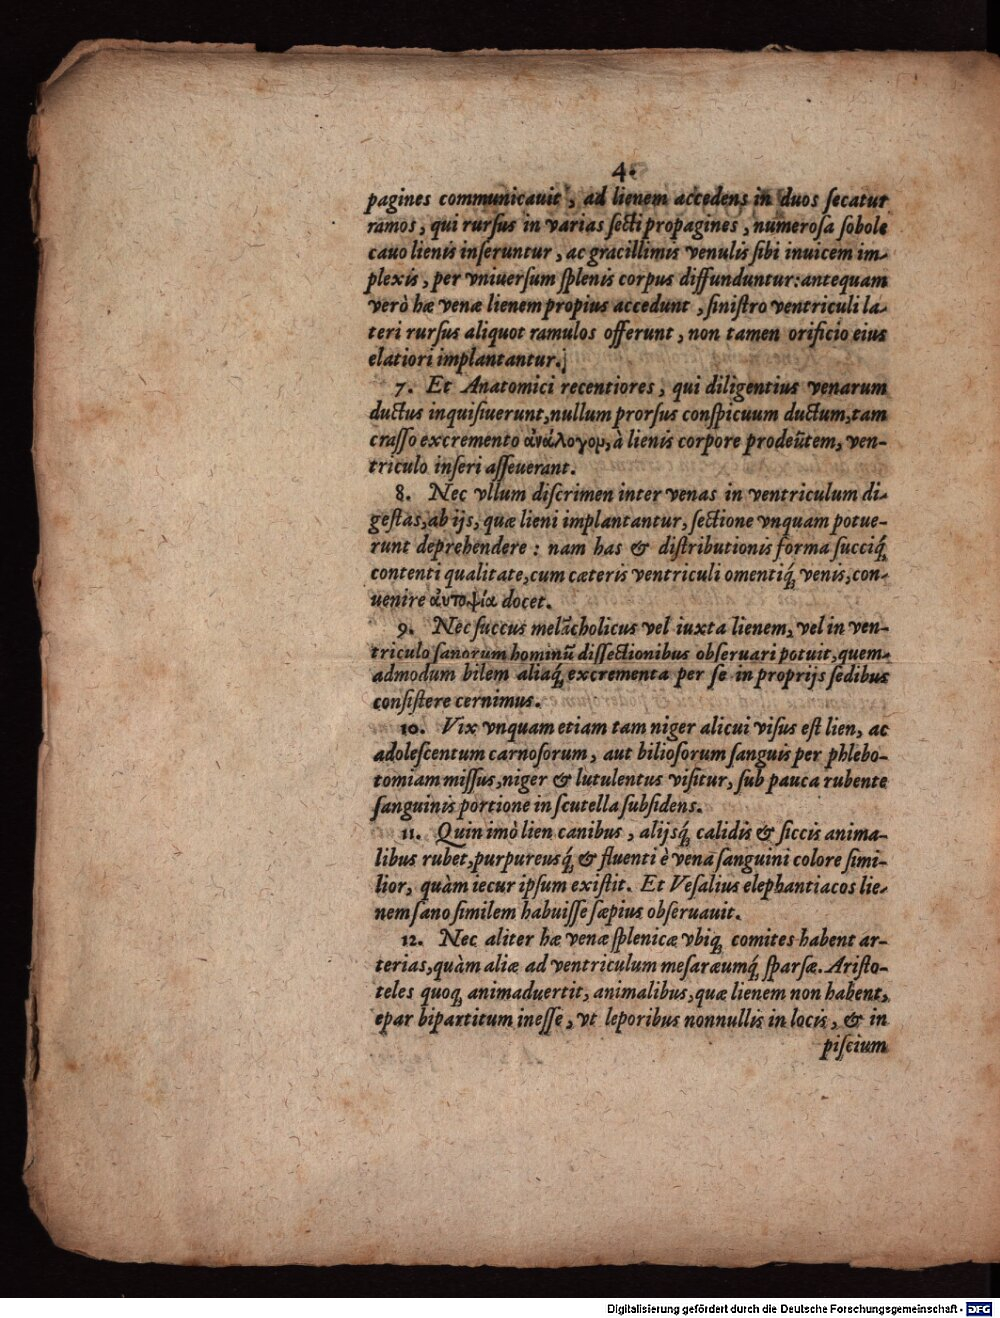 4.
pagines communicauit, ad lienem accedens in duos ſecatur
ramos, qui rurſus in varias ſecti propagines, numeroſa ſobole
cauo lienis inſeruntur, ac gracillimis venulis ſibi inuicem im-
plexis, per vniuerſum ſplenis corpus diffunduntur: antequam
verò hæ venæ lienem propius accedunt, ſiniſtro ventriculi la-
teri rurſus aliquot ramulos offerunt, non tamen orificio eius
elatiori implantantur.
7. Et Anatomici recentiores, qui diligentius venarum
ductus inquiſiuerunt, nullum prorſus conſpicuum ductum, tam
craſſo excremento ἀνάλογομ, à lienis corpore prodeũtem, ven-
triculo inſeri aſſeuerant.
8. Nec vllum diſcrimen inter venas in ventriculum di-
geſtas, ab ijs, quæ lieni implantantur, ſectione vnquam potue-
runt deprehendere: nam has & diſtributionis forma ſucciq́
contenti qualitate, cum cæteris ventriculi omentiq́ venis, con-
uenire ἀυτοψία docet.
9. Nec ſuccus melãcholicus vel iuxta lienem, vel in ven-
triculo ſanorum hominũ diſſectionibus obſeruari potuit, quem-
admodum bilem aliaq́ excrementa per ſe in proprijs ſedibus
conſiſtere cernimus.
10. Vix vnquam etiam tam niger alicui viſus eſt lien, ac
adoleſcentum carnoſorum, aut bilioſorum ſanguis per phlebo-
tomiam miſſus, niger & lutulentus viſitur, ſub pauca rubente
ſanguinis portione in ſcutella ſubſidens.
11. Quin imò lien canibus, alijsq́ calidis & ſiccis anima-
libus rubet, purpureusq́ & fluenti è vena ſanguini colore ſimi-
lior, quàm iecur ipſum exiſtit. Et Veſalius elephantiacos lie-
nem ſano ſimilem habuiſſe ſæpius obſeruauit.
12. Nec aliter hæ venæ ſplenicæ vbiq; comites habent ar-
terias, quàm aliæ ad ventriculum meſaræumq́ ſparſæ. Ariſto-
teles quoq; animaduertit, animalibus, quæ lienem non habent,
epar bipartitum ineſſe, vt leporibus nonnullis in locis, & in
piſcium
Digitalisierung gefördert durch die Deutsche Forschungsgemeinschaft - DFG